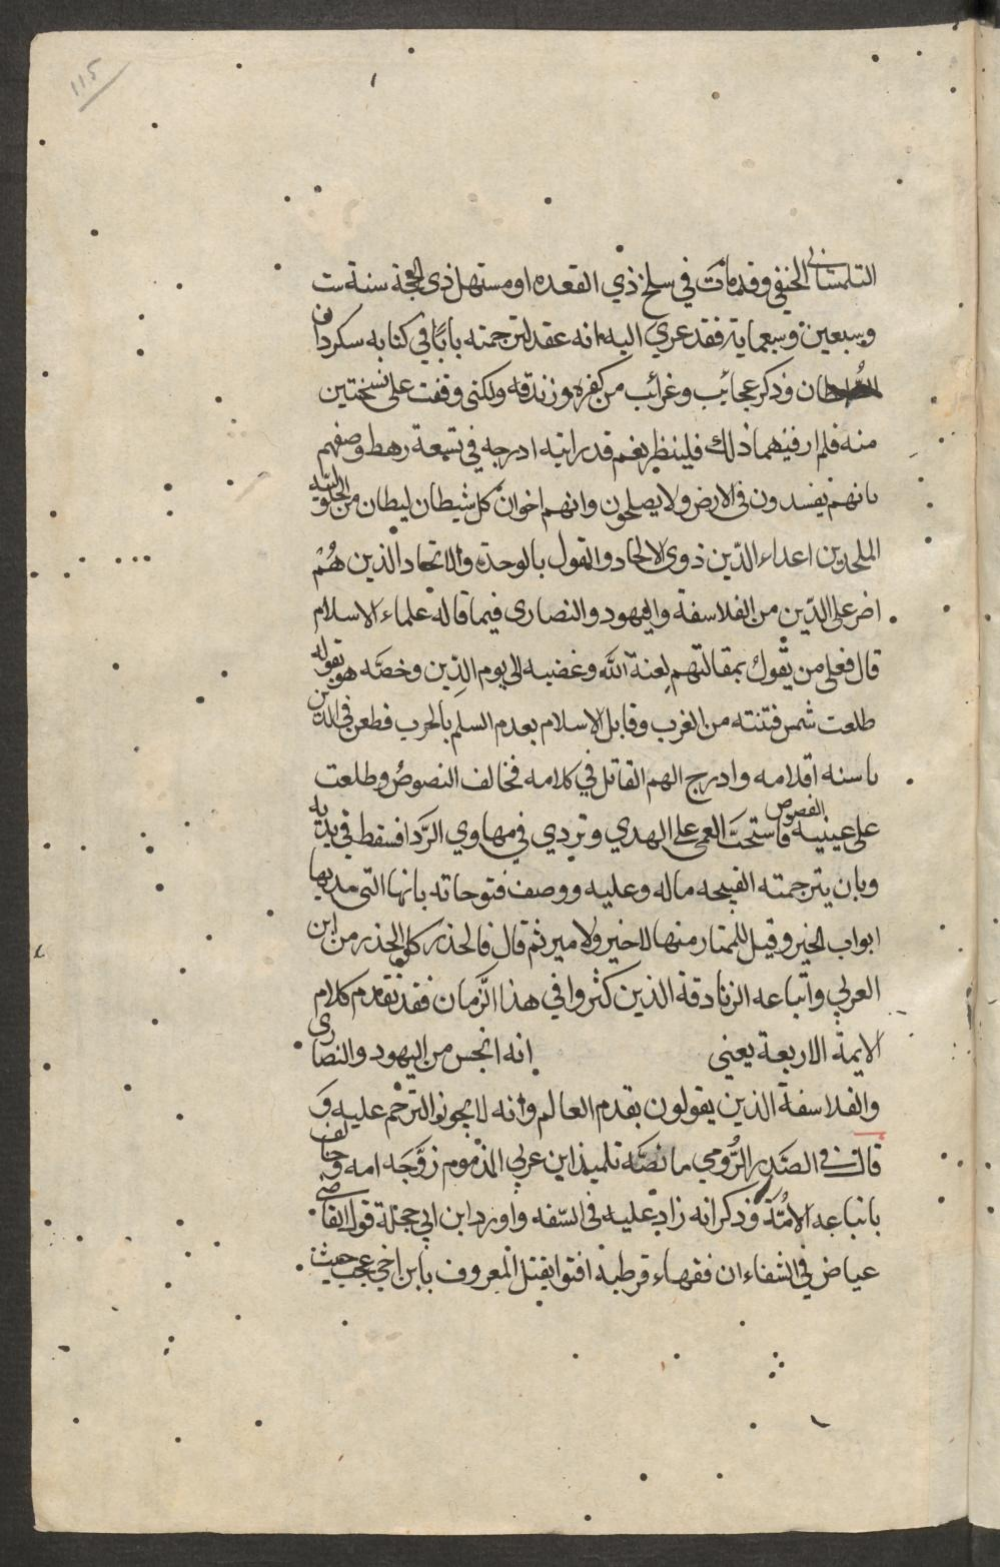 ١١٥
التلمساني الحنفي وقد مات في سلخ ذي القعده او مستهل ذى الحجة سنة ست
وسبعين وسبعماية فقد عزي اليه انه عقد لترجمته بابًا في كتابه سكردان
وذكر عجايب وغرائب من كفره وزندقه ولكنى وقفت على نسختين
منه فلم ار فيهما ذلك فلينظر نعم قد رايته ادرجه في تسعة رهط وصفهم
بانهم يفسدون فى الارض ولا يصلحون وانهم اخوان كل شيطان ليطان من الحلوليه
الملحدين اعداء الدّين ذوى الالحاد والقول بالوحدة والاتحاد الذين هُم
اضر على الدّين من الفلاسفة واليهود والنصارى فيما قاله علماء الاسلام
قال فعلى من يقول بمقالتهم لعنة الله وغضبه الى يوم الدّين وخصّه هو بقوله
طلعت شمس فتنته من الغرب وقابل الاسلام بعدم السلم بالحرب فطعن في الدين
باسنه اقلامه وادرج الهم القاتل في كلامه فخالف النصوصُ وطلعت
على عينيه الفصوص فاستحبّ العمى على الهدي وتردي في مهاوي الرّدا فسقط في يديه
وبان بترجمته القبيحه ماله وعليه ووصف فتوحاته بانها التى مد بها
ابواب الخير وقيل للممتار منها لا خير ولا مير ثم قال فالحذر كل الحذر من ابن
العربي واتباعه الزنادقة الذين كثروا في هذا الزّمان فقد تقدم كلام
الايمة الاربعة يعنى انه انجس من اليهود والنصارى
والفلاسفة الذين يقولون بقدم العالم وانه لا يجوز الترحّم عليه و
قال فى الصّدر الرُّومي ما نصّه تلميذ ابن عربي المذموم زوّجَه امه وخالف
باتباعه الامُّة وذكر انه زاد عليه فى السّفه واورد ابن ابي حجلة قول القاضى
عياض في الشفاء ان فقهاء قرطبة افتوا بقتل المعروف بابن اخي عجب حيث